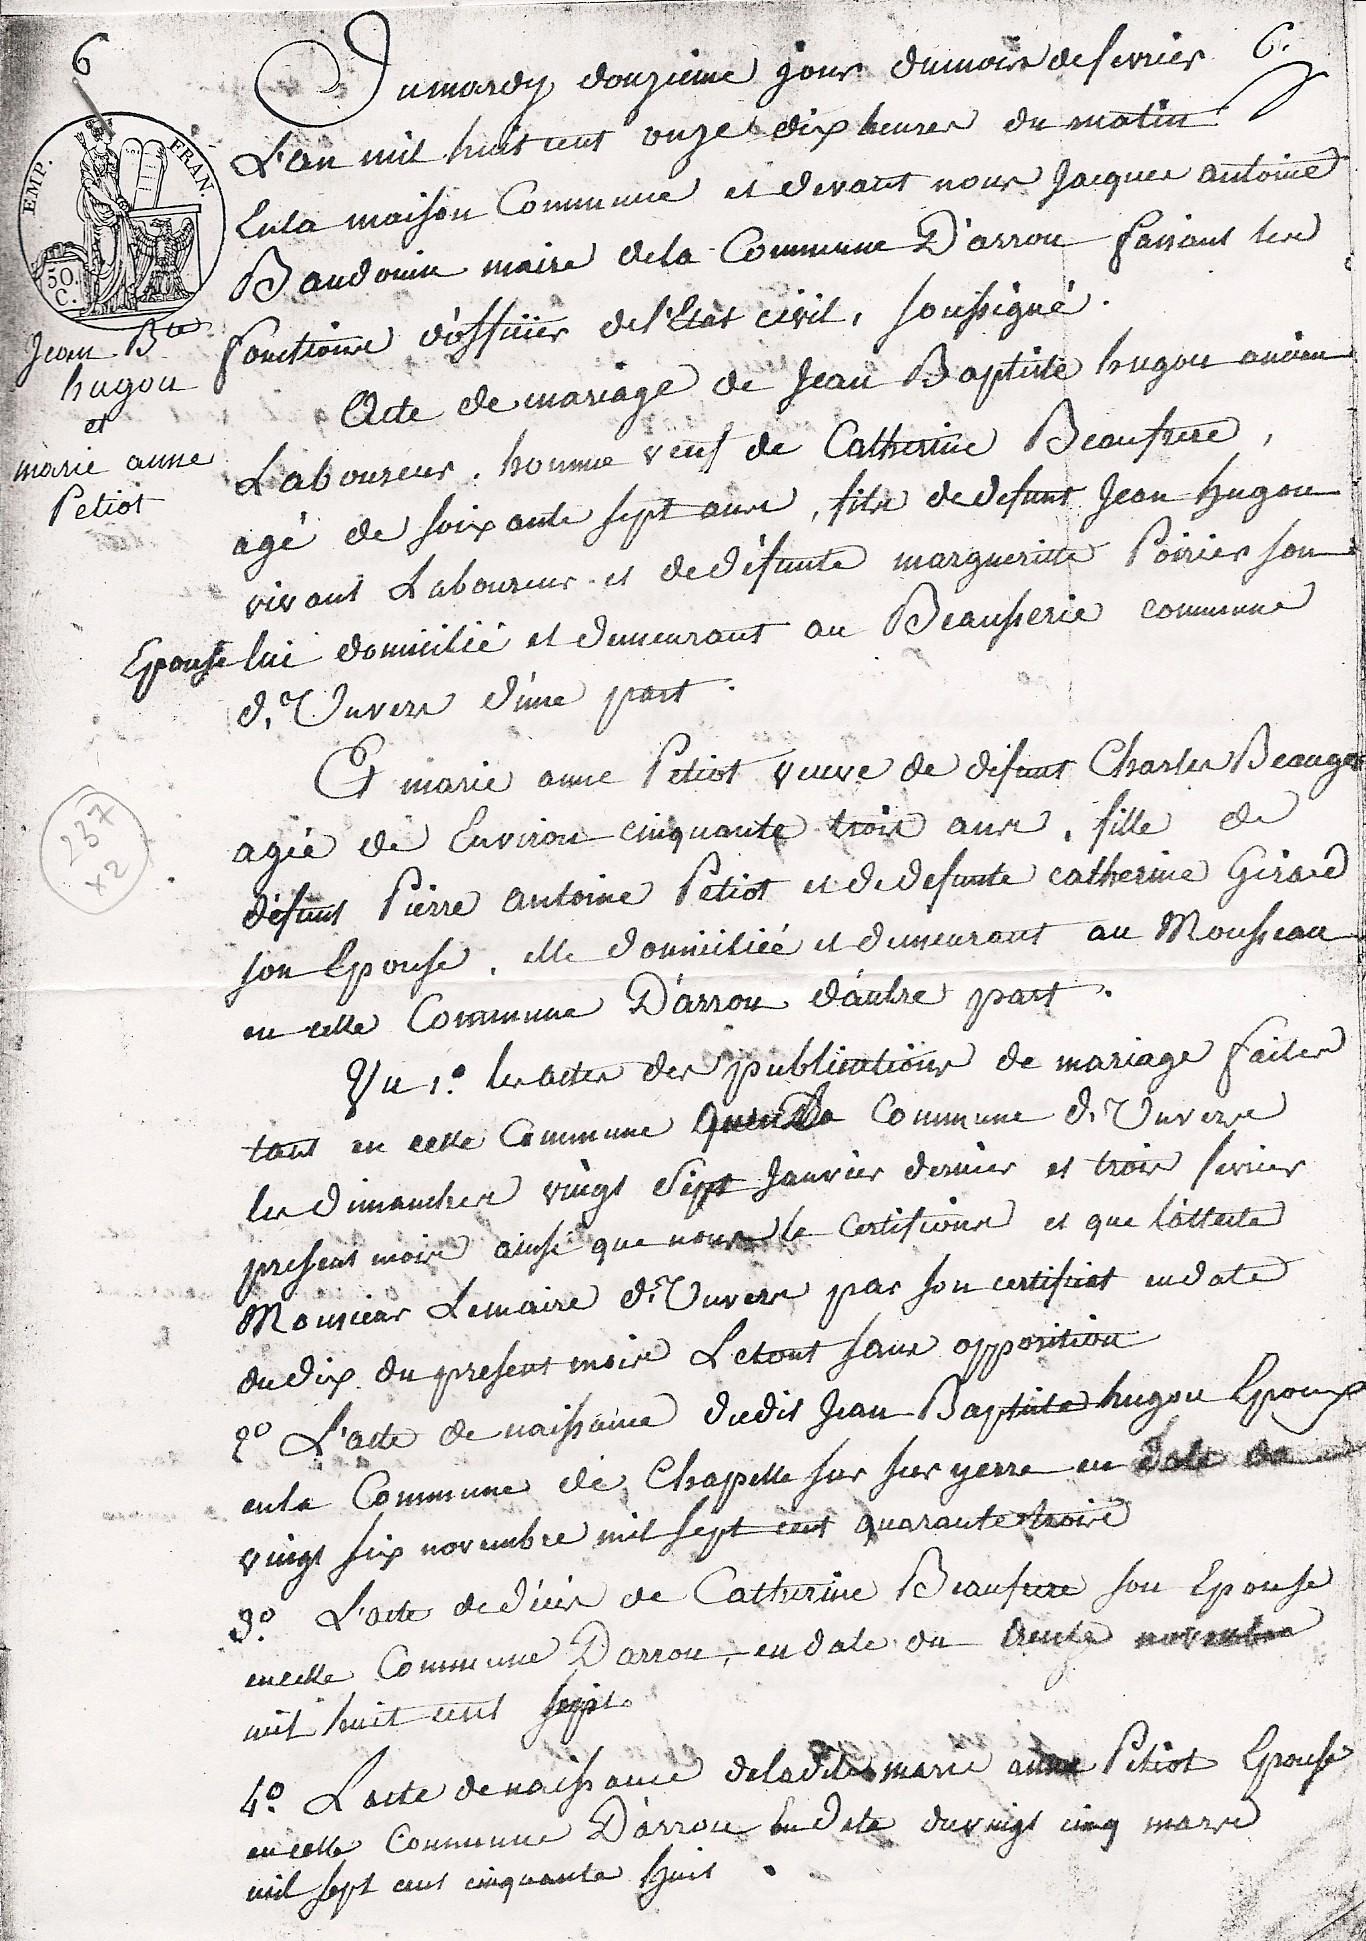 6
6.
Du mardy douzieme jour du mois de fevrier
L'an mil huit cent onze dix heures du matin
En la maison Commune et devant nous Jacques antoine
Baudouin maire de la Commune D'arrou faisant les
fonctions d'officier de l'Etat civil, soussigné.
EMP. FRAN.
50 C.
Jean Bte
hugou
et
marie anne
Petiot
Acte de mariage de Jean Baptiste hugou ancien
Laboureur, homme veuf de Catherine Beaufrere,
agé de soixante sept ans, fils de defunt Jean hugou
vivant Laboureur et de défunte margueritte Poirier son
Epouse lui domicilié et demeurant au commune
d'Unverre d'une part.
Et marie anne Petiot veuve de défunt Charles Beauger
agée de Environ cinquante trois ans, fille de
défunt Pierre antoine Petiot et de defunte catherine Girard
son Epouse, elle domiciliée et demeurant au Mousseau
en cette Commune D'arrou d'autre part.
Vu 1.º les actes des publications de mariage faites
tant en cette Commune qu'en la Commune d'Unverre
les dimanches vingt sept Janvier dernier et trois fevrier
present mois ainsi que nous le certifions et que l'atteste
Monsieur Lemaire d'Unverre par son certificat en date
du dix du present mois Le tout sans opposition
2º L'acte de naissance dudit Jean Baptiste hugou Epoux
en la Commune de Chapelle sur sur yerre en date du
vingt six novembre mil sept cent quarante trois
3.º L'acte de décès de Catherine Beaufrere son Epouse
en cette Commune D'arrou, en date du trente novembre
mil huit cent sept.
4.º L'acte de naissance de ladite marie anne Petiot Epouse
en cette Commune D'arrou En date du vingt cinq mars
mil sept cent cinquante huit.
237
x2